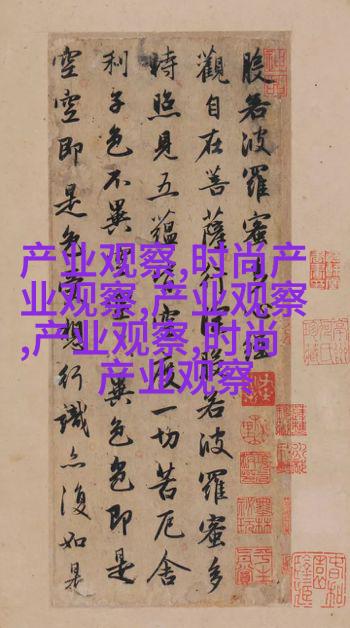 般若波羅蜜心經
觀自在菩薩行般若波羅蜜多
時照見五蘊空一切苦厄舍
利子色不異異色色即是
空空即是想行識亦復如是
产业观察,时尚产
业观察,产业观察
,产业观察,时尚
产业观察